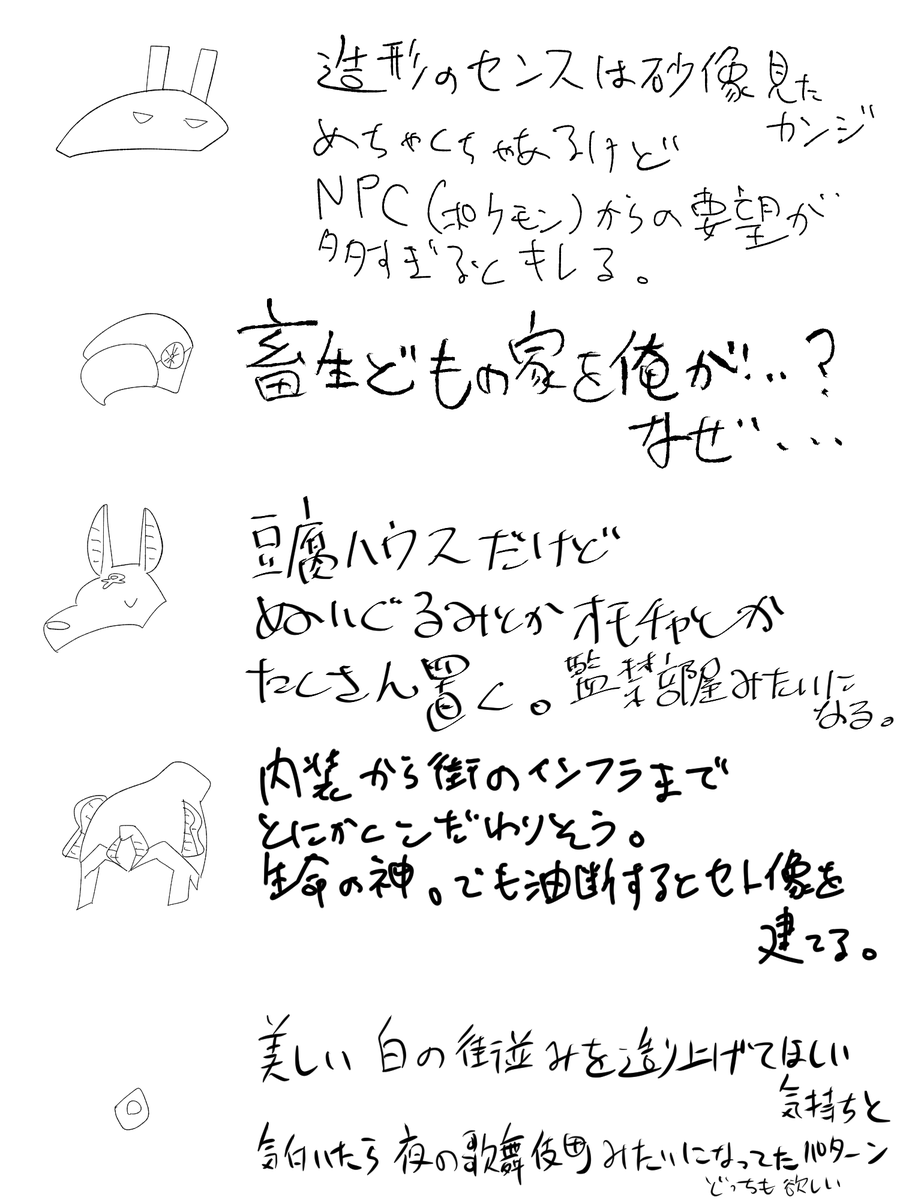 造形のセンスは砂像見た
カンジ
めちゃくちゃあるけど
NPC(ポケモン)からの要望が
多すぎるとキレる。
畜生どもの家を俺が…?
なぜ…
豆腐ハウスだけど
ぬいぐるみとかオモチャとか
たくさん置く。監禁部屋みたいに
なる。
内装から街のインフラまで
とにかくこだわりそう。
生命の神。でも油断するとセト像を
建てる。
美しい白の街並みを造り上げてほしい
気持ちと
気付いたら夜の歌舞伎町みたいになってたパターン
どっちも欲しい